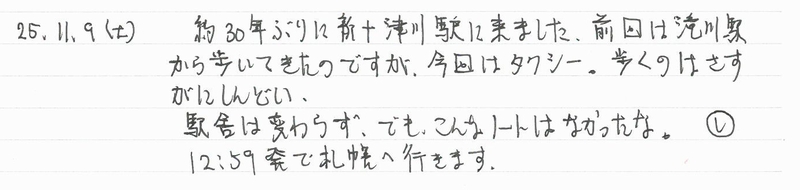 25.11.9(土) 約30年ぶりに新十津川駅に来ました、前回は滝川駅
から歩いてきたのですが、今回はタクシー。歩くのはさす
がにしんどい、
駅舎は変わらず、でも、こんなノートはなかったな。 Ⓛ
12:59発で札幌へ行きます.